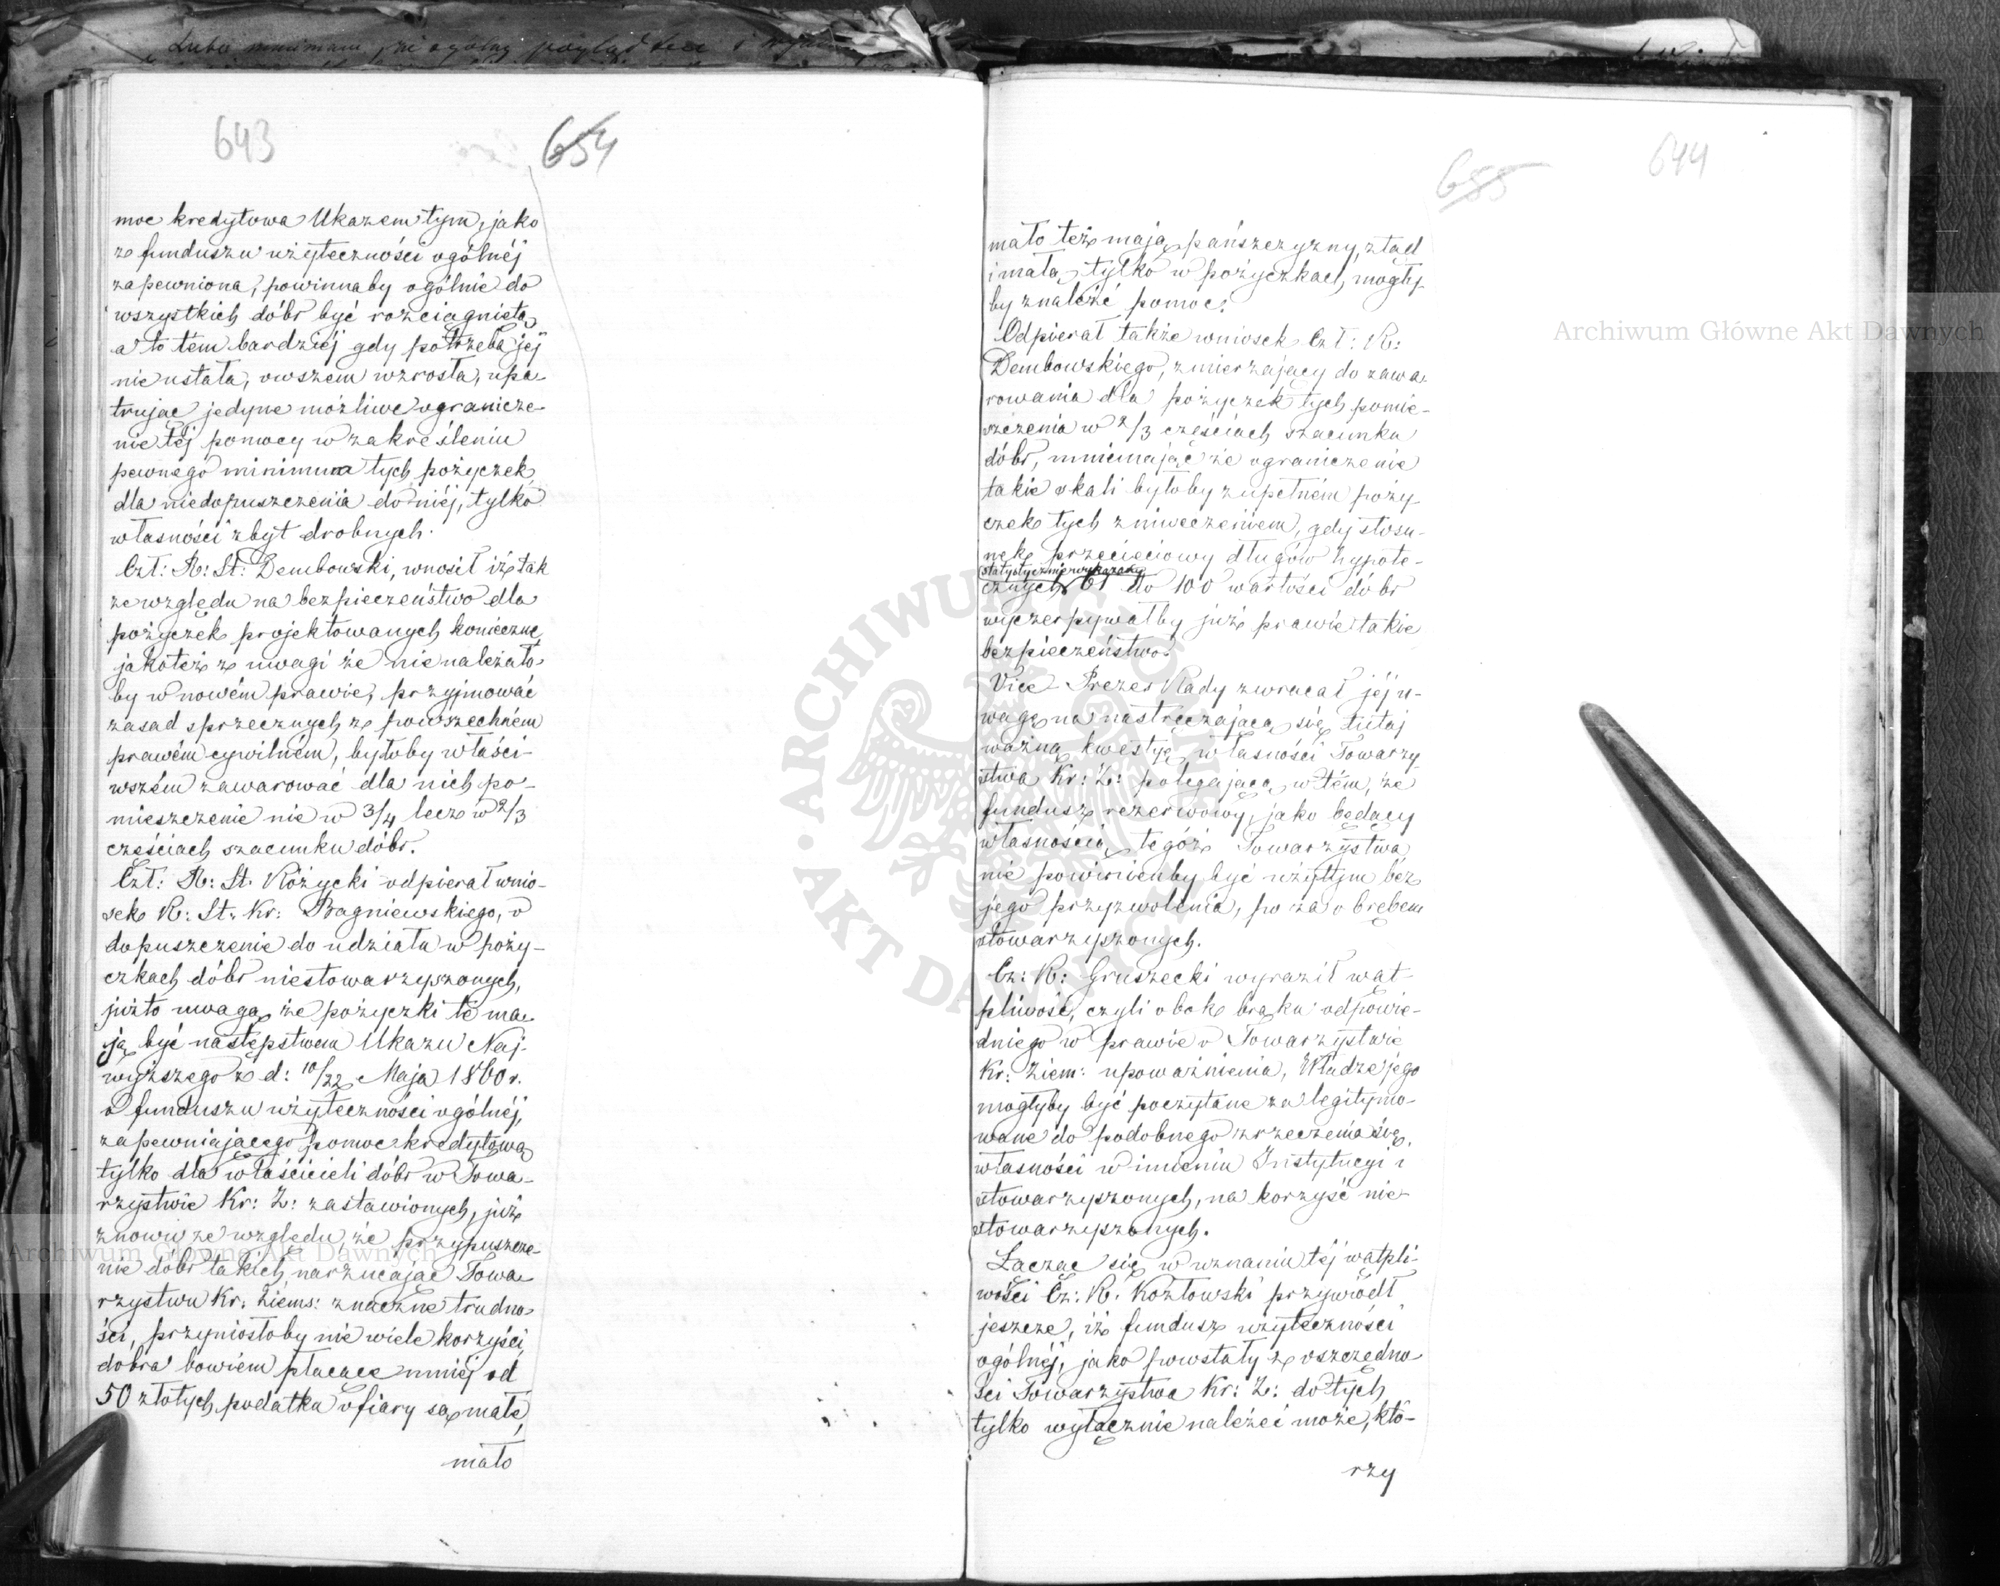 643
654
moc kredytowa Ukazem tym, jako
z funduszu użyteczności ogólnéj
zapewniona, powinnaby ogólnie do
wszystkich dóbr być rozciągnięta,
a to tem bardziéj gdy potrzeba jej
nie ustała, owszem wzrosła, upa-
trując jedyne możliwe ogranicze-
nie téj pomocy w zakreśleniu
pewnego minimum tych pożyczek
dla niedopuszczenia do niéj, tylko
własności zbyt drobnych.
Czł: R: St: Dembowski, wnosił iż tak
ze względu na bezpieczeństwo dla
pożyczek projektowanych konieczne,
jakoteż z uwagi że nie należało-
by w nowém prawie, przyjmować
zasad sprzecznych z powszechném
prawém cywilném, byłoby właści-
wszém zawarować dla nich po-
mieszczenie nie w 3/4 lecz w 2/3
częściach szacunku dóbr.
Czł: R: St. Różycki odpierał wnio-
sek R: St: Kr: Bagniewskiego, o
dopuszczenie do udziału w poży-
czkach dóbr niestowarzyszonych,
już to uwagą że pożyczki te ma-
ją być następstwem Ukazu Naj-
wyższego z d: 10/22 Maja 1860 r.
o funduszu użyteczności ogólnéj,
zapewniającego pomoc kredytową
tylko dla właścicieli dóbr w Towa-
rzystwie Kr: Z: zastawionych, już
znowu ze względu, że przypuszcze-
nie dóbr takich, narzucając Towa-
rzystwu Kr: Ziems: znaczne trudno-
ści, przyniosłoby nie wiele korzyści,
dobra bowiem płacące mniéj od
50 złotych podatku ofiary są małe,
mało
655
644
mało też mają pańszczyzny, ztąd
i małą tylko w pożyczkach mogły-
by znaléźć pomoc.
Odpierał także wniosek Czł: R:
Dembowskiego, zmierzający do zawa-
rowania dla pożyczek tych pomie-
szczenia w 2/3 częściach szacunku
dóbr, mniemając że ograniczenie
takie skali byłoby zupełném poży-
czek tych zniweczeniem, gdy stosu-
nek przecięciowy długów hypote-
statystycznie wykazany
cznych 61 do 100 wartości dóbr
wyczerpywałby już prawie takie
bezpieczeństwo.
Vice-Prezes Rady zwracał jéj u-
wagę na nastręczającą się tutaj
ważną kwestyę własności Towarzy-
stwa Kr: Z: polegającą w tém, że
fundusz rezerwowy, jako będący
własnością tegóż Towarzystwa
nie powinienby być użytym bez
jego przyzwolenia, po za obrębem
stowarzyszonych.
Cz: R: Gruszecki wyraził wąt-
pliwość, czyli obok braku odpowie-
dniego w prawie o Towarzystwie
Kr: Ziem: upoważnienia, Władze jego
mogłyby być poczytane za legitymo-
wane do podobnego zrzeczenia się,
własności w imieniu Instytucyi i
stowarzyszonych, na korzyść nie-
stowarzyszonych.
Łacząc się w uznaniu téj wątpli-
wości Cz: R. Kozłowski przywiódł
jeszcze, iż fundusz użyteczności
ogólnéj, jako powstały z oszczędno-
ści Towarzystwa Kr: Z: do tych
tylko wyłącznie należeć może, któ-
rzy
Archiwum Główne Akt Dawnych
Archiwum Główne Akt Dawnych
ARCHIWUM GŁÓWNE AKT DAWNYCH